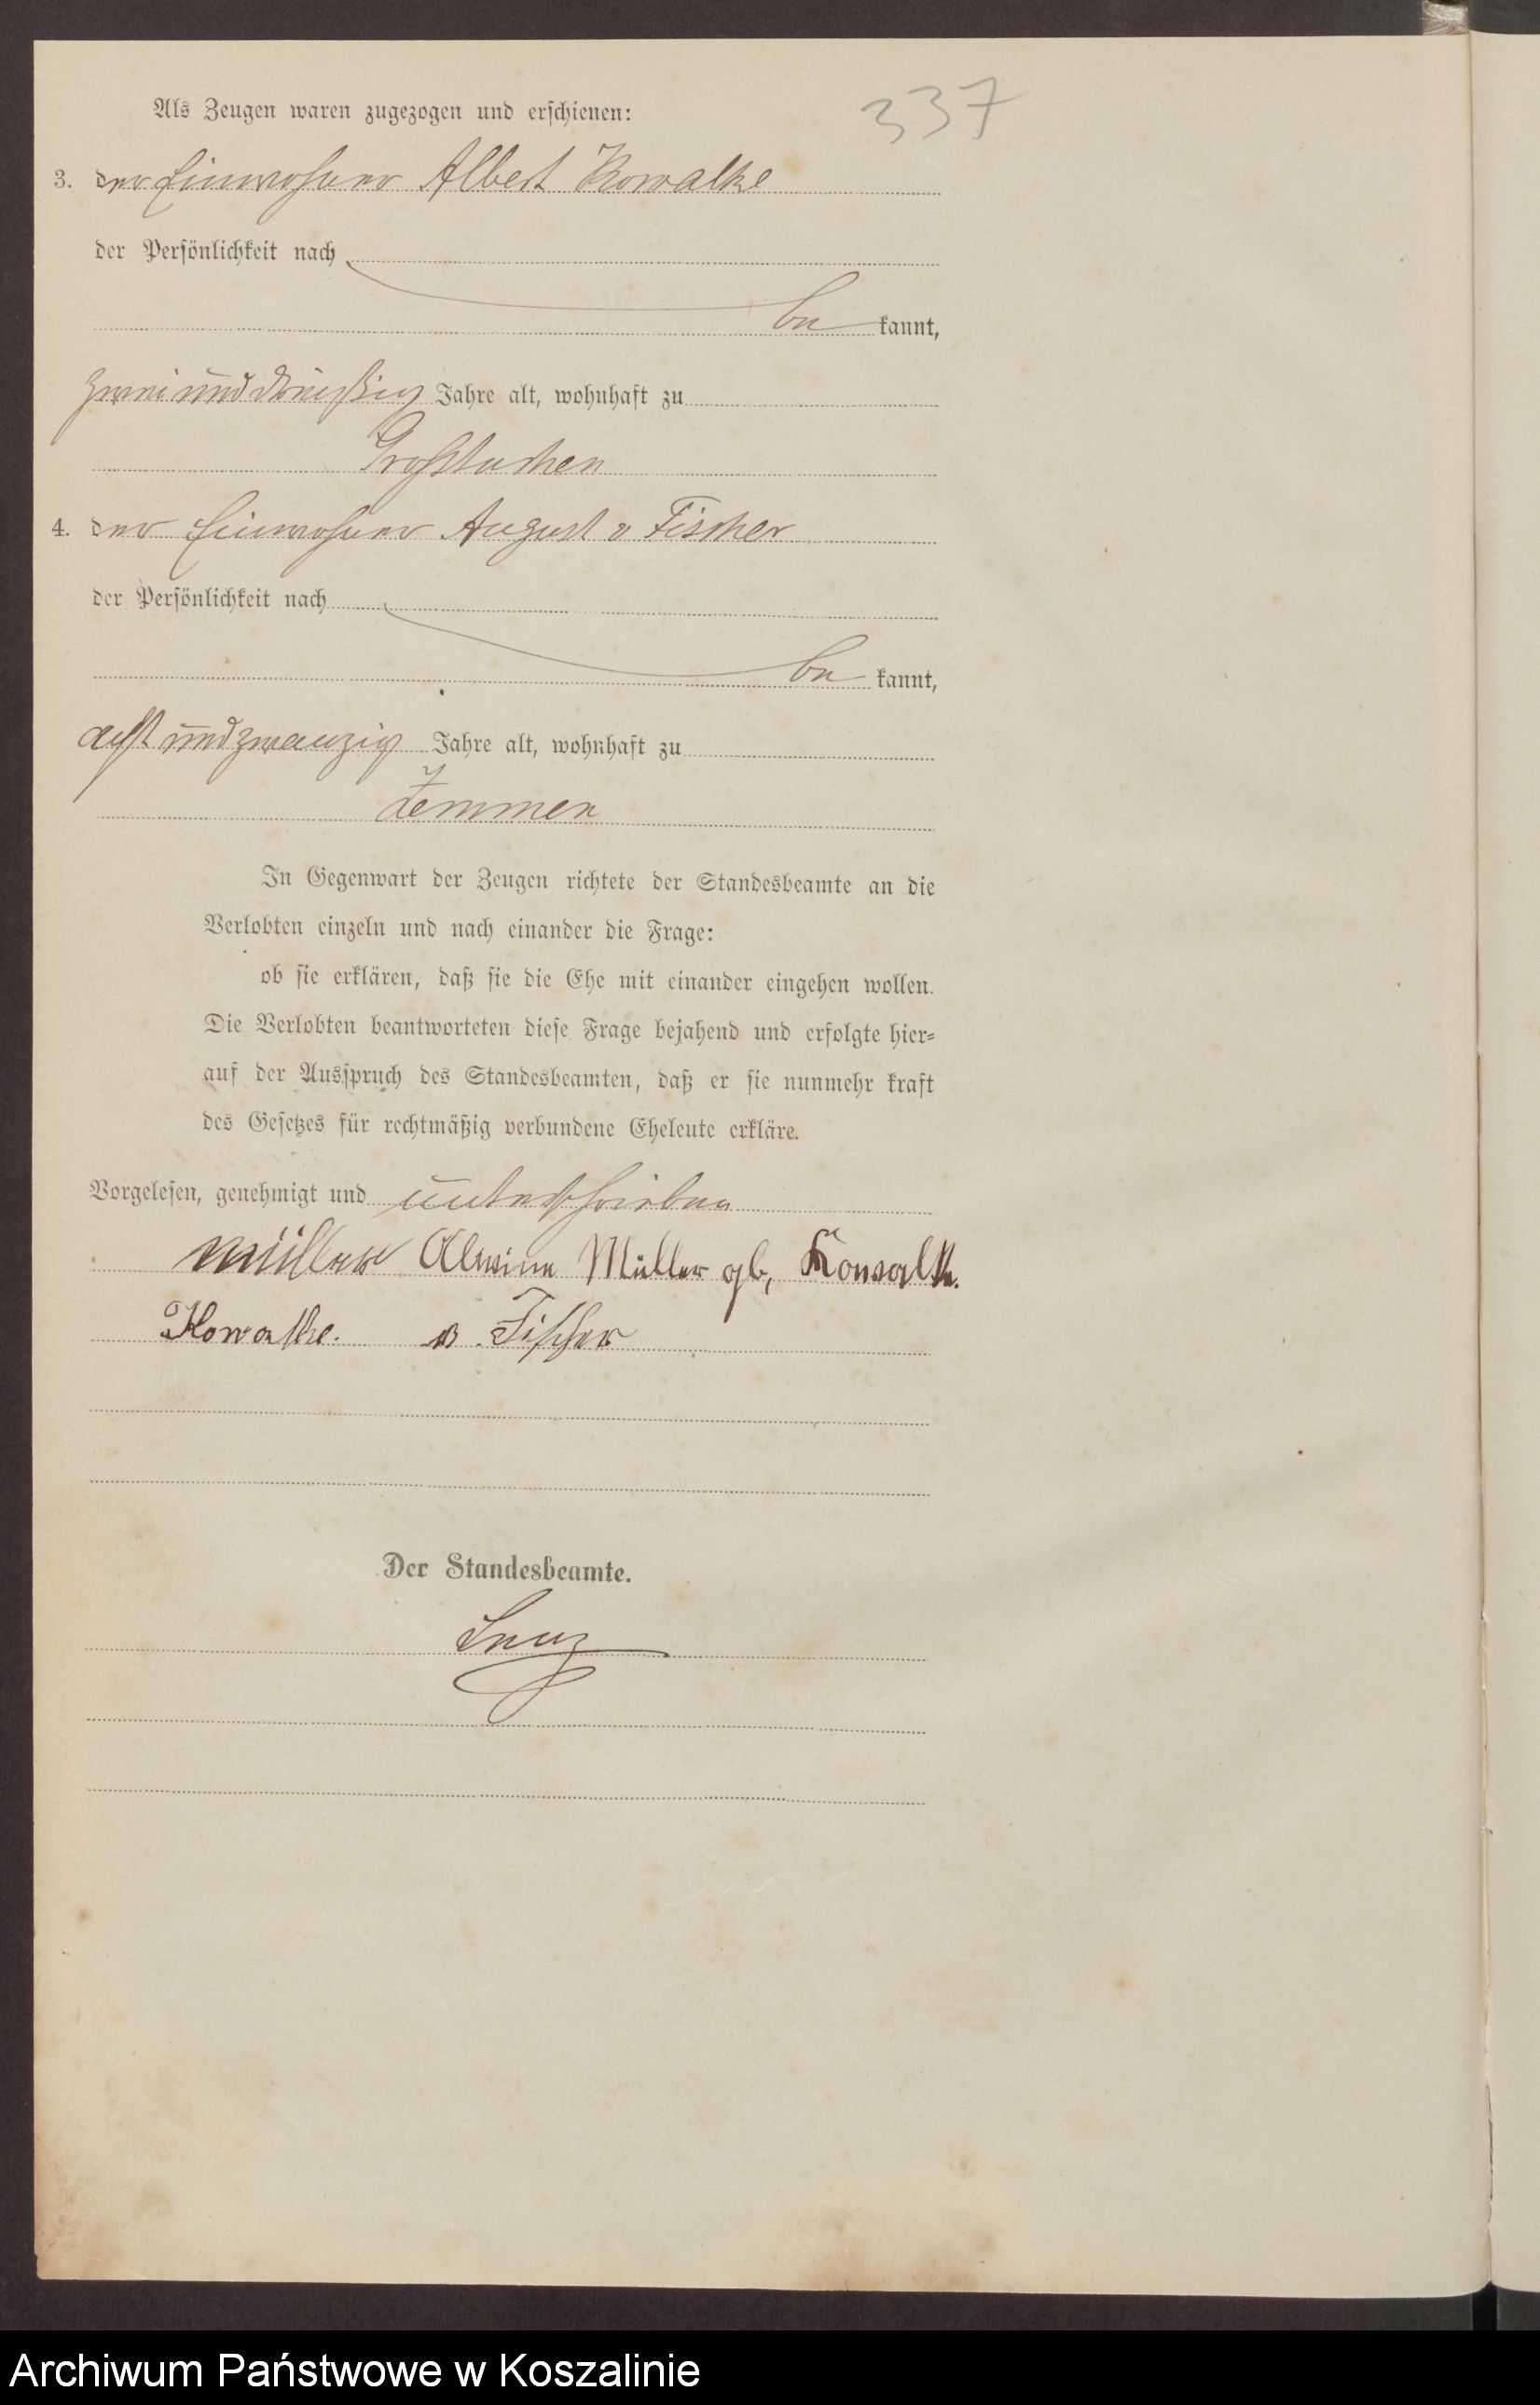 337
Als Zeugen waren zugezogen und erschienen:
3. der Einwohner Albert Kowalke
der Persönlichkeit nach
be kannt,
zwei und dreißig Jahre alt, wohnhaft zu
Großtuchen
4. der Einwohner August v Fischer
der Persönlichkeit nach
be kannt,
acht und zwanzig Jahre alt, wohnhaft zu
Zemmen
In Gegenwart der Zeugen richtete der Standesbeamte an die
Verlobten einzeln und nach einander die Frage:
ob sie erklären, daß sie die Ehe mit einander eingehen wollen.
Die Verlobten beantworteten diese Frage bejahend und erfolgte hier=
auf der Ausspruch des Standesbeamten, daß er sie nunmehr kraft
des Gesetzes für rechtmäßig verbundene Eheleute erkläre.
Vorgelesen, genehmigt und unterschrieben
Müller Alwine Müller gb, Kowalke.
Kowalke. v. Fischer
Der Standesbeamte.
Lenz
Archiwum Państwowe w Koszalinie